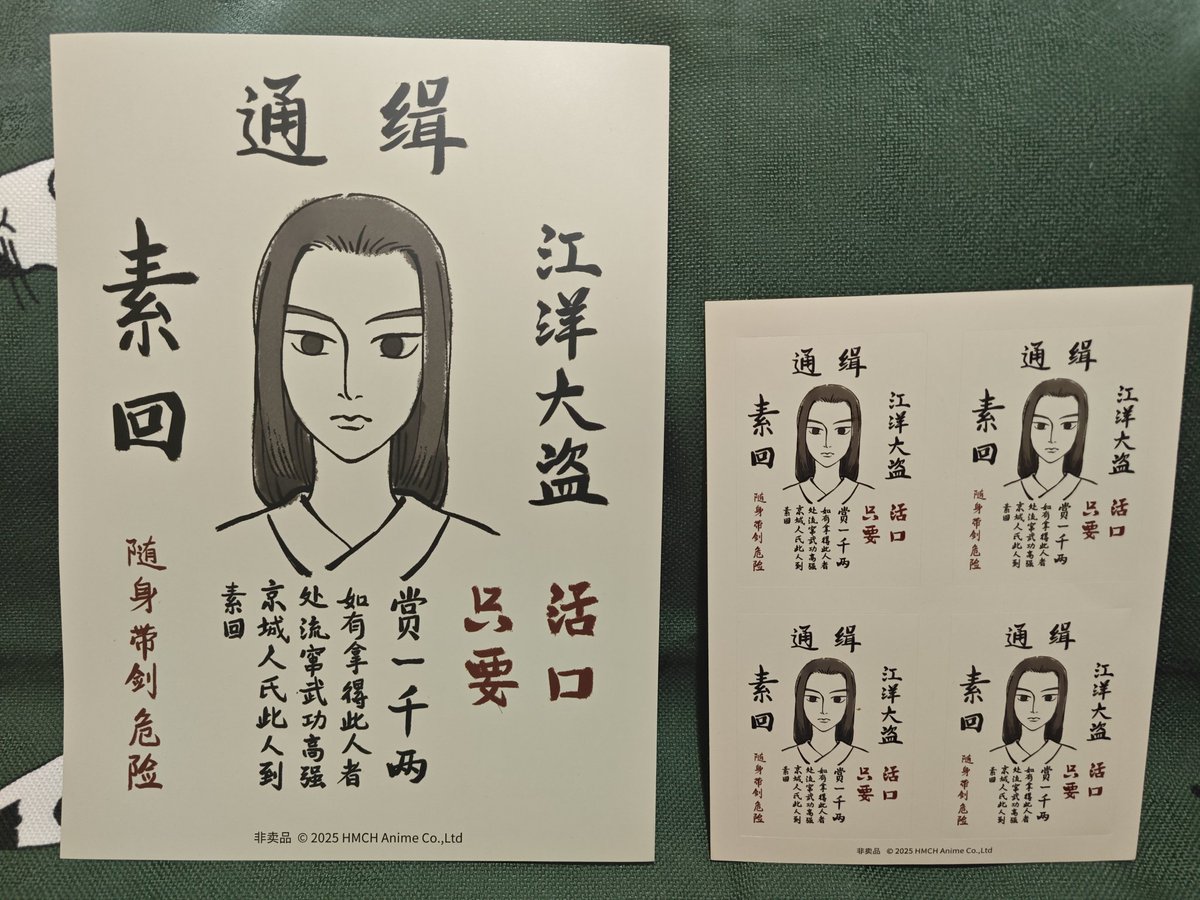 通缉
江洋大盗
素回
随身带剑危险
素回
京城人氏此人到
处流窜武功高强
如有拿得此人者
赏一千两
只要
活口
非卖品 © 2025 HMCH Anime Co.,Ltd
通缉
江洋大盗
素回
随身带剑危险
素回
京城人氏此人到
处流窜武功高强
如有拿得此人者
赏一千两
只要
活口
通缉
江洋大盗
素回
随身带剑危险
素回
京城人氏此人到
处流窜武功高强
如有拿得此人者
赏一千两
只要
活口
通缉
江洋大盗
素回
随身带剑危险
素回
京城人氏此人到
处流窜武功高强
如有拿得此人者
赏一千两
只要
活口
通缉
江洋大盗
素回
随身带剑危险
素回
京城人氏此人到
处流窜武功高强
如有拿得此人者
赏一千两
只要
活口
非卖品 © 2025 HMCH Anime Co.,Ltd